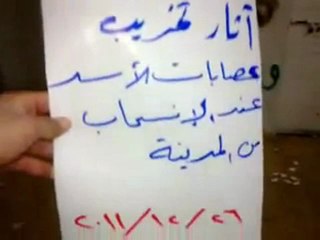 آثار تخريب
عصابات الأسد
عند الإنسحاب
من المدينة
٢٠١١/١٢/٢٦